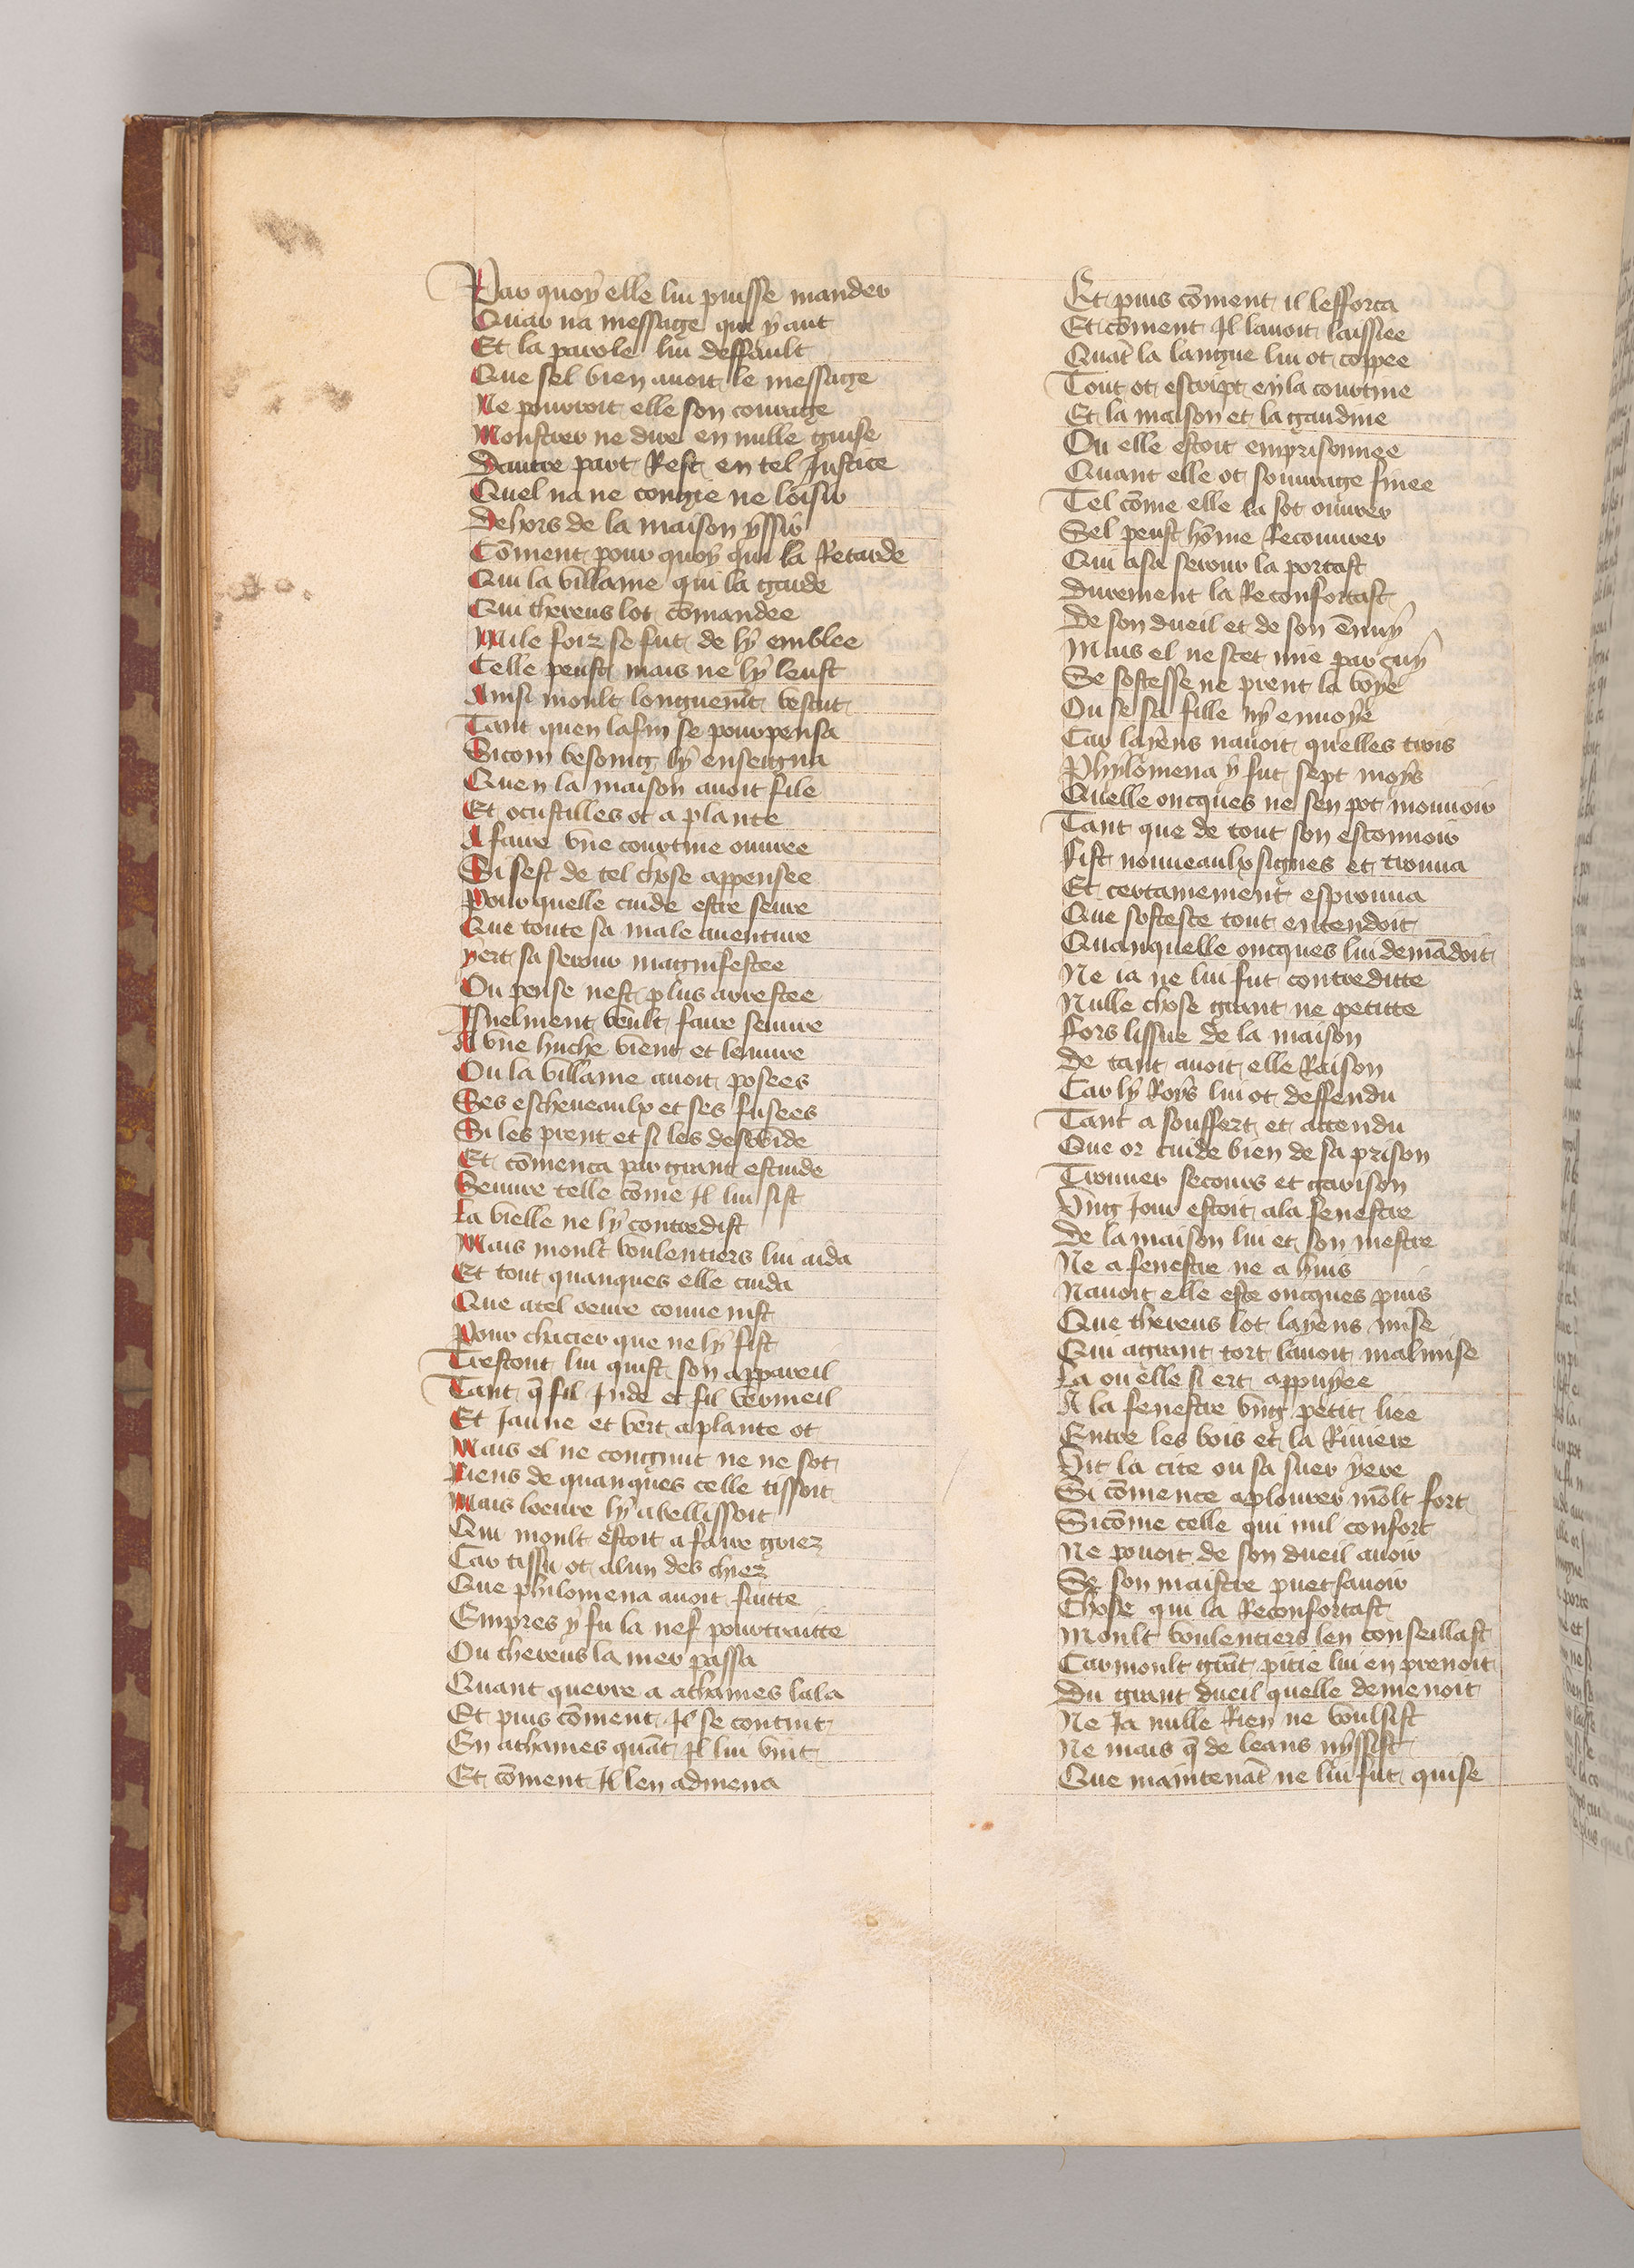 Par quoy elle lui puisse mander
Quar na message qui y aut
Et la parole lui deffault
Que sel bien auoit le message
Ne pourroit elle son courage
Monstrer ne dire en nulle guise
Dautre part Rest en tel Justice
Quel na ne congie ne loisir
Dehors de la maison yssir
Cōment pour quoy qui la Retarde
Qui la villaine qui la garde
Qui thereus lot cōmandee
Mile foiz se fut de ly emblee
Celle peust mais ne ly leust
Ainsi moult longuemt vescut
Tant quen lafin se pourpensa
Sicom besoing ly enseigna
Quen la maison auoit file
Et ocustilles ot a plante
A faire vne courtine ouuree
Si sest de tel chose appensee
Pour quelle cuide estre seure
Que toute sa male auenture
yert sa serour magnifestee
Ou pense nest plus arrestee
Isnelment veult faire seuure
A vne huche vient et leuure
Ou la villaine auoit posees
Ses escheueaulx et ses fusees
Si les prent et si les desvuide
Et cōmenca par grant estuide
Seuure telle cōme Il lui sist
La vielle ne ly contredist
Mais moult voulentiers lui aida
Et tout quanques elle cuida
Que atel oeure conuenist
Pour chacier que ne ly fist
Trestout lui quist son appareil
Tant q̄ fil Inde et fil vermeil
Et Jaune et vert aplante ot
Mais el ne congnut ne ne sot
Riens de quanques celle tissoit
Mais loeure ly abellissoit
Qui moult estoit a faire griez
Car tissu ot alun des chiez
Que philomena auoit faitte
Empres y fu la nef pourtraitte
Ou thereus la mer passa
Quant querre a athaines lala
Et puis cōment Il se contint
En athaines quāt Il lui vint
Et cōment Il len admena
Et puis cōment il lefforca
Et cōment Il lauoit laissiee
Quāt la langue lui ot coppee
Tout ot escript en la courtine
Et la maison et la gaudine
Ou elle estoit emprisonnee
Quant elle ot souurage finee
Tel cōme elle la sot ouurer
Sel peust hōme Recouurer
Qui asa serour la portast
Durement la Reconfortast
De son dueil et de son ēnuy
Mais el ne scet mie par cuy
Se sostesse ne prent la voye
Ou se sa fille ny enuoye
Car layens nauoit quelles trois
Phylomena y fut sept moys
Quelle oncques ne sen pot mouuoir
Tant que de tout son estouuoir
Fist nouueaulx signes et trouua
Et certainement esprouua
Que sosteste tout entendoit
Quanquelle oncques lui demādoit
Ne ia ne lui fut contreditte
Nulle chose grant ne petitte
Fors lissue de la maison
De tant auoit elle Raison
Car ly Roys lui ot deffendu
Tant a souffert et attendu
Que or cuide bien de sa prison
Trouuer secours et garison
Vng Jour estoit ala fenestre
De la maison lui et son mestre
Ne a fenestre ne a huis
Nauoit elle este oncques puis
Que thereus lot layens mise
Qui agrant tort lauoit malmise
La ou elle si ert appuyee
A la fenestre vng petit liee
Entre les bois et la Riuiere
Vit la cite ou sa suer yere
Si cōmence aplourer mōlt fort
Sicōme celle qui nul confort
Ne pouoit de son dueil auoir
Se son maistre puet sauoir
Chose qui la Reconfortast
Moult voulentiers len conseillast
Car moult grāt pitie lui en prenoit
Du grant dueil quelle demenoit
Ne Ja nulle Rien ne voulsist
Ne mais q̄ de leans nyssist
Que maintenāt ne lui fut quise